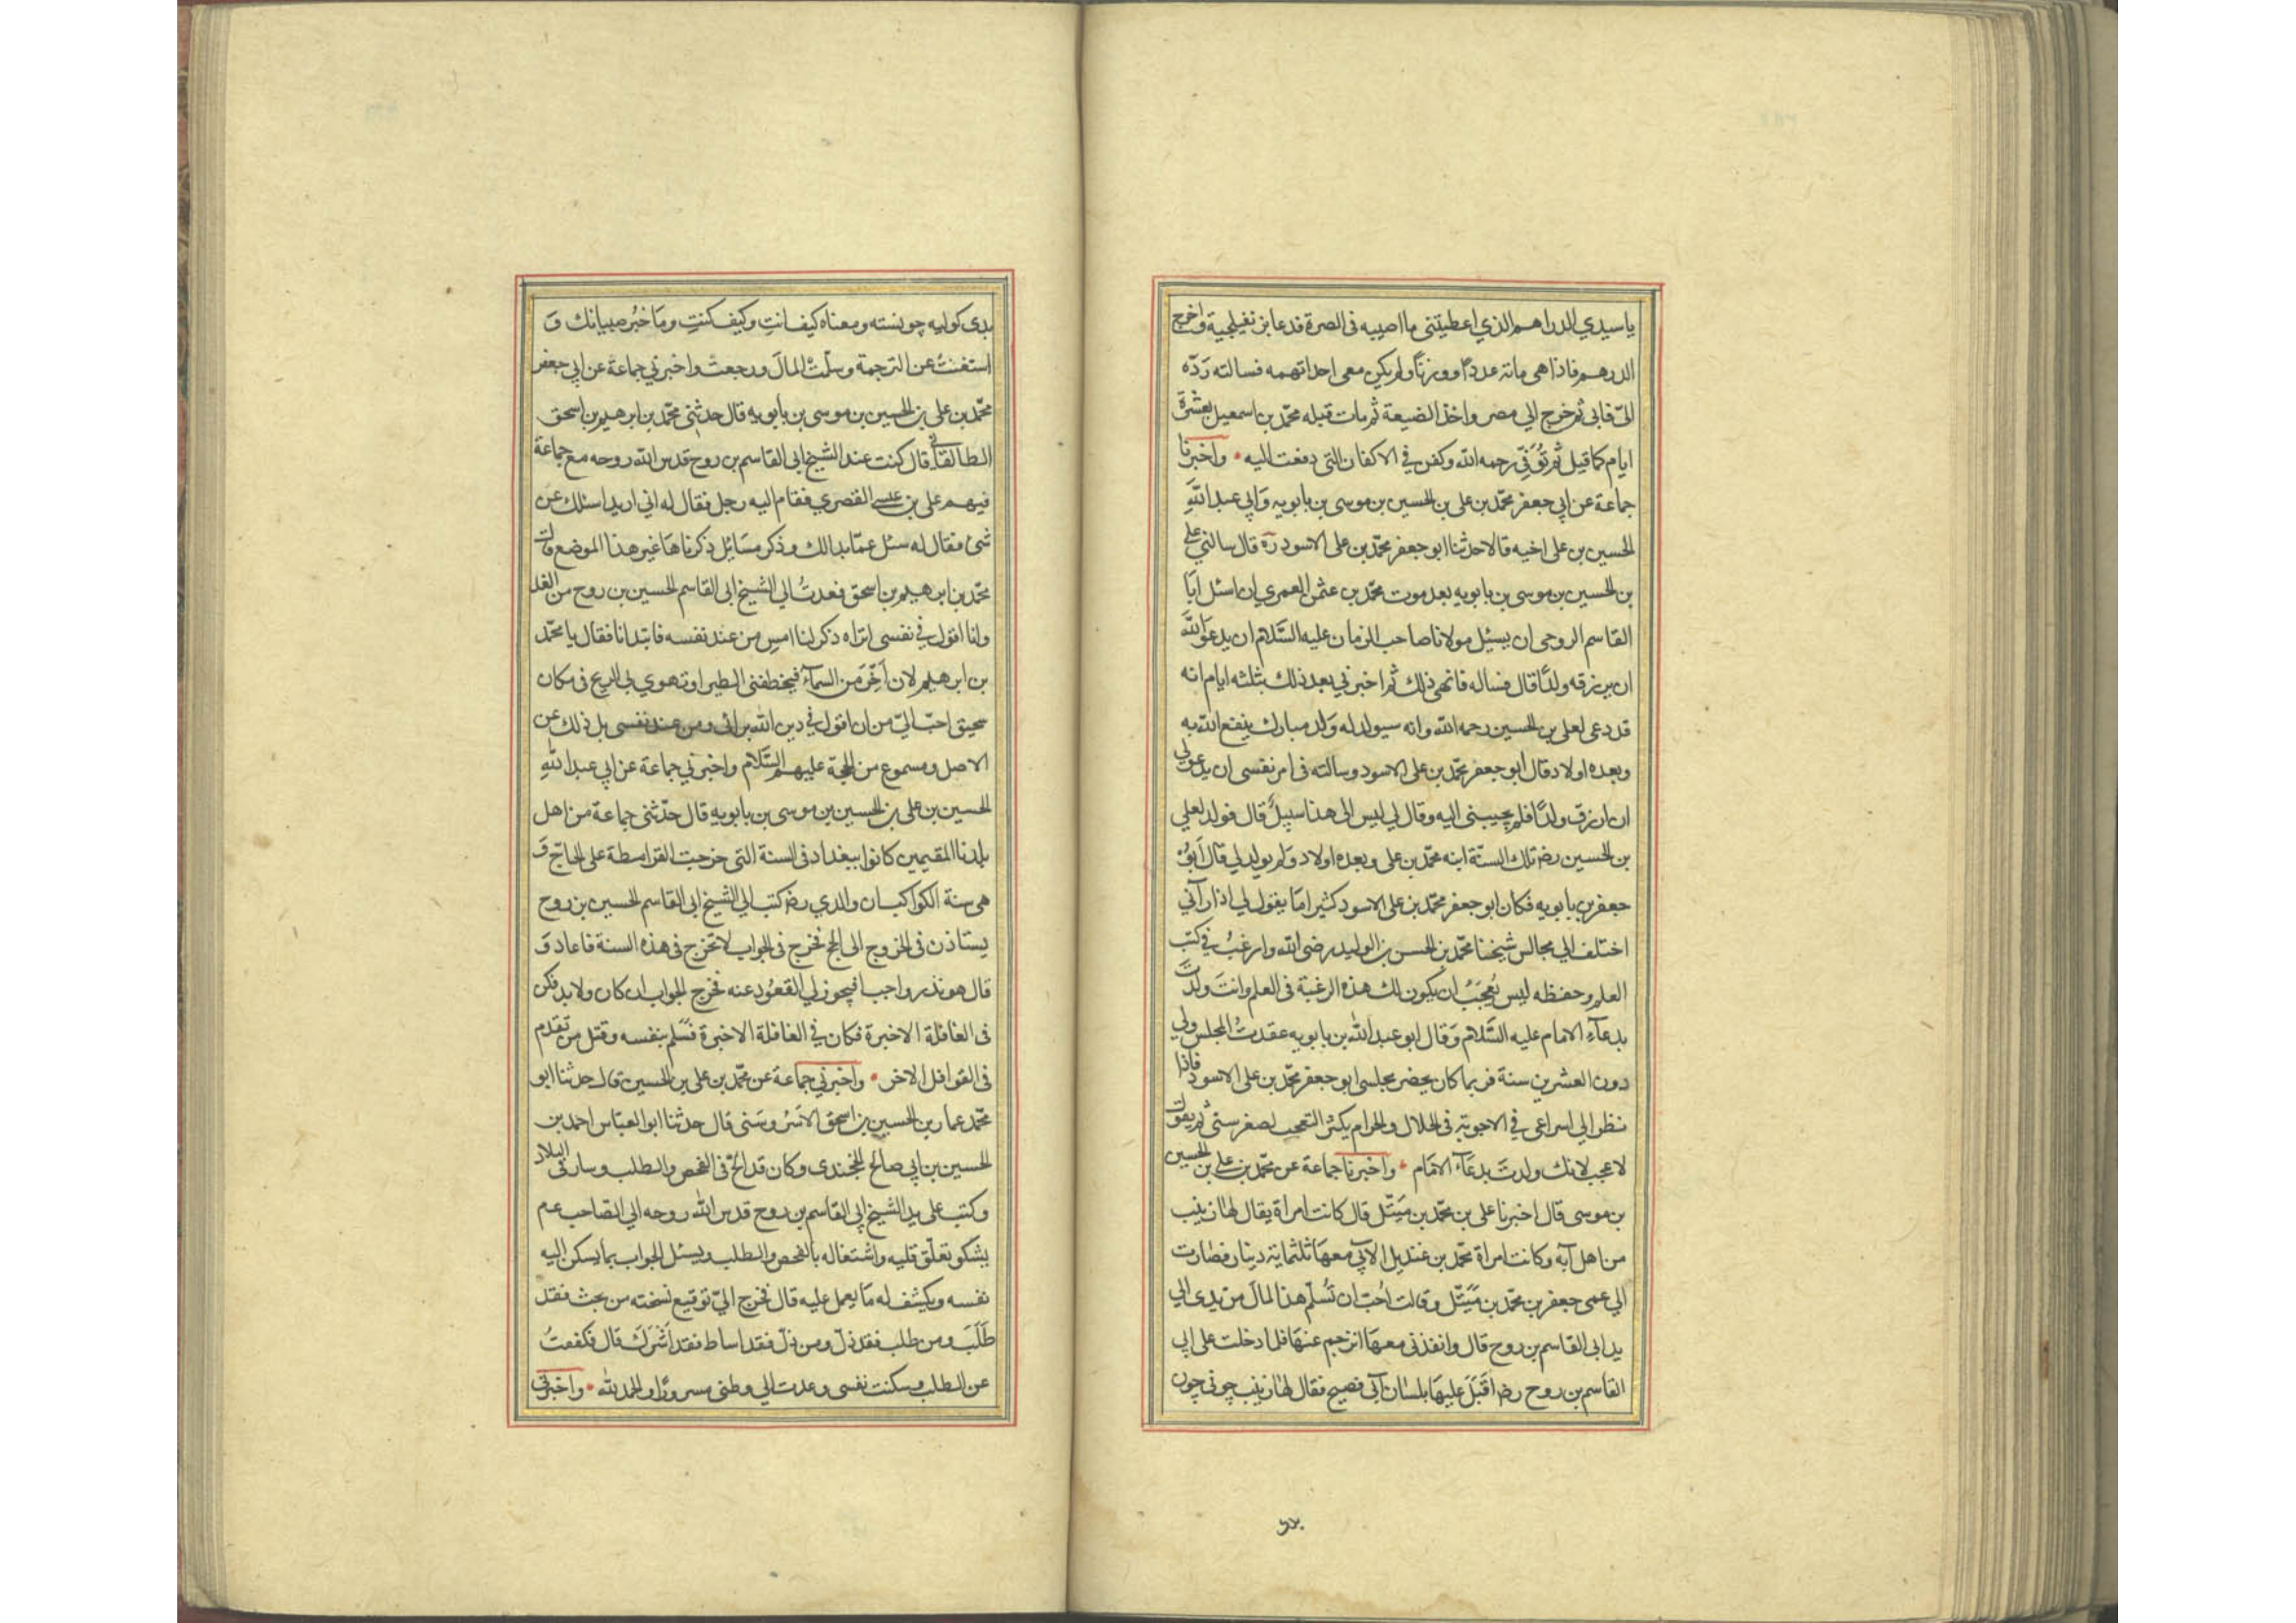 ياسيدي الدراهم الذي اعطيتني ما اصيبه في الصرة فدعا بزنفيلجية واخرج
الدرهم فاذا هي مائة عددًا ووزنًا ولم يكن معي احد اتهمه فسالته ردّه
اليّ فابى ثم خرج الي مصر واخذ الضيعة ثم مات قبله محمّد بن اسمعيل بعشرة
ايام كما قيل ثم تُوُفّي رحمه الله وكفن في الاكفان التي دفعت اليه • واخبرنا
جماعة عن ابي جعفر محمّد بن علي بن الحسين بن موسى بن بابويه وَابي عبد اللهِ
الحسين بن علي اخيه قالا حدثنا ابو جعفر محمّد بن علي الاسود ره قال سالني علي
بن الحسين بن موسى بن بابويه بعد موت محمّد بن عثمن العمري ان اسئل ابَا
القاسم الروحي ان يسئل مولانا صاحب الزمان عليه السَّلام ان يدعوَ اللهَ
ان يرزقه ولدًا قال فساله فانهى ذلك ثم اخبرني بعد ذلك بثلثه ايام انه
قد دعى لعلي بن الحسين رحمه الله وانه سيولد له وَلد مبارك ينفع الله به
وبعده اولاد قال ابو جعفر محمّد بن علي الاسود وسالته في امر نفسي ان يدعو لي
ان ارزق ولدًا فلم يجيبني اليه وقال لي ليس الى هذا سبيلٌ قال فولد لعلي
بن الحسين رضه تلك السنّة ابنه محمّد بن علي وبعده اولاد وَلم يولد لي قال اَبُوْ
جعفر بن بابويه فكان ابو جعفر محمّد بن علي الاسود كثيرامَا يقول لي اذا رآني
اختلف الي مجالس شيخنا محمّد بن الحسن بن الوليد رضى الله وارغبُ في كتب
العلم وحفظه ليس بِعَجَبٍ ان يكون لك هذه الرغبة في العلم وانتَ ولدتَ
بدعآءِ الامام عليه السَّلام وَقال ابو عبد الله بن بابويه عقدتُ المجلس ولي
دون العشرين سنة فربما كان يحضر مجلسي ابو جعفر محمّد بن علي الاسود فاذا
نظر الي اسراعي في الاجوبة في الحلال والحرام يكثر التعجب لصغر سنّي ثم يقول
لا عجب لانك ولدتَ بدعَآء الامَام • واخبرنا جماعة عن محمّد بن علي بن الحسين
بن موسى قال اخبرنا علي بن محمّد بن مَتّيل قال كانت امراة يقال لها زينب
من اهل آبه وكانت امراة محمّد بن عنديل الآبي معهَا ثلثمائة دينار فصَارت
الي عمي جعفر بن محمّد بن مَتّيل وقالت اُحبّ ان تُسلّم هذا المالَ من يدي الي
يد ابي القاسم بن روح قال وانفذني معهَا اترجم عنهَا فلما دخلت علي ابي
القاسم بن روح رضه اَقبَلَ عليهَا بلسَان آبى فصيح فقال لهَا زينب چونى چون
بدى كوليه چونسته ومعناه كيف انتِ وكيف كنتِ ومَا خبرُ صبيانك وَ
استغنتُ عن الترجمة وسلّمتُ المالَ ورجعت واخبرني جماعة عن ابي جعفر
محمّد بن علي بن الحسين بن موسى بن بابويه قال حدثني محمّد بن ابرهيم بن اسحق
الطالقاني قال كنت عند الشيخ ابي القاسم بن روح قدس الله روحه مع جماعة
فيهم علي بن عيسى القصري فقام اليه رجل فقال له اني اريد اسئلك عن
شيء فقال له سئل عمّا بدا لك وذكر مسَائِل ذكرناهَا غير هذا الموضع قال
محمّد بن ابرهيم بن اسحق فعدتُ الي الشيخ ابي القاسم الحسين بن روح من الغد
وانا اقول في نفسي اتراه ذكر لنا امسِ من عند نفسه فابتدانا فقال يا محمّد
بن ابرهيم لان اَخِرَّ مَن السمآء فيخطفني الطير او تهوي بي الريح في مكان
سحيق احبّ اليّ من ان اقول في دين الله برائي ومن عند نفسي بل ذلك عن
الاصل ومسموع من الحجّة عليهم السَّلام واخبرني جماعة عن ابي عبد اللهِ
الحسين بن علي بن الحسين بن موسى بن بابويه قال حدّثني جماعة من اهل
بلدنا المقيمين كانوا ببغداد في السنة التي خرجت القرامطة على الحاجّ وَ
هي سنة الكواكب ان والدي رضه كتب الي الشيخ ابي القاسم الحسين بن روح
يستاذن في الخروج الى الحج فخرج في الجواب لا تخرج في هذه السنة فاعاد وَ
قال هو نذر واجب افيجوز لي القعُود عنه فخرج الجواب ان كان ولا بد فكن
في القافلة الاخيرة فكان في القافلة الاخيرة فسَلم بنفسه وقتل من تقدم
في القوافل الاخر • واخبرني جماعة عن محمّد بن علي بن الحسين قال حدثنا ابو
محمّد عمار بن الحسين بن اسحق الاسْروسَني قال حدثنا ابو العبّاس احمد بن
الحسين بن ابي صالح الخجندى وكان قد الحّ في الفحص والطلب وسار في البلاد
وكتب على يد الشيخ ابي القاسم بن روح قدس الله روحه الي الصّاحب عم
يشكو تعلّق قلبه واشتغاله بالفحص والطلب ويسئل الجواب بما يسكن اليه
نفسه ويكشف له مَا يعمل عليه قال فخرج اليّ توقيع نسخته من بحث فقد
طَلَبَ ومن طلب فقد ذلّ ومن ذلّ فقد اساط فقد اَشْرَكَ قال فكففتُ
عن الطلب وسكنت نفسي وعدت الي وطني مسرورًا والحمد لله • واخبرني